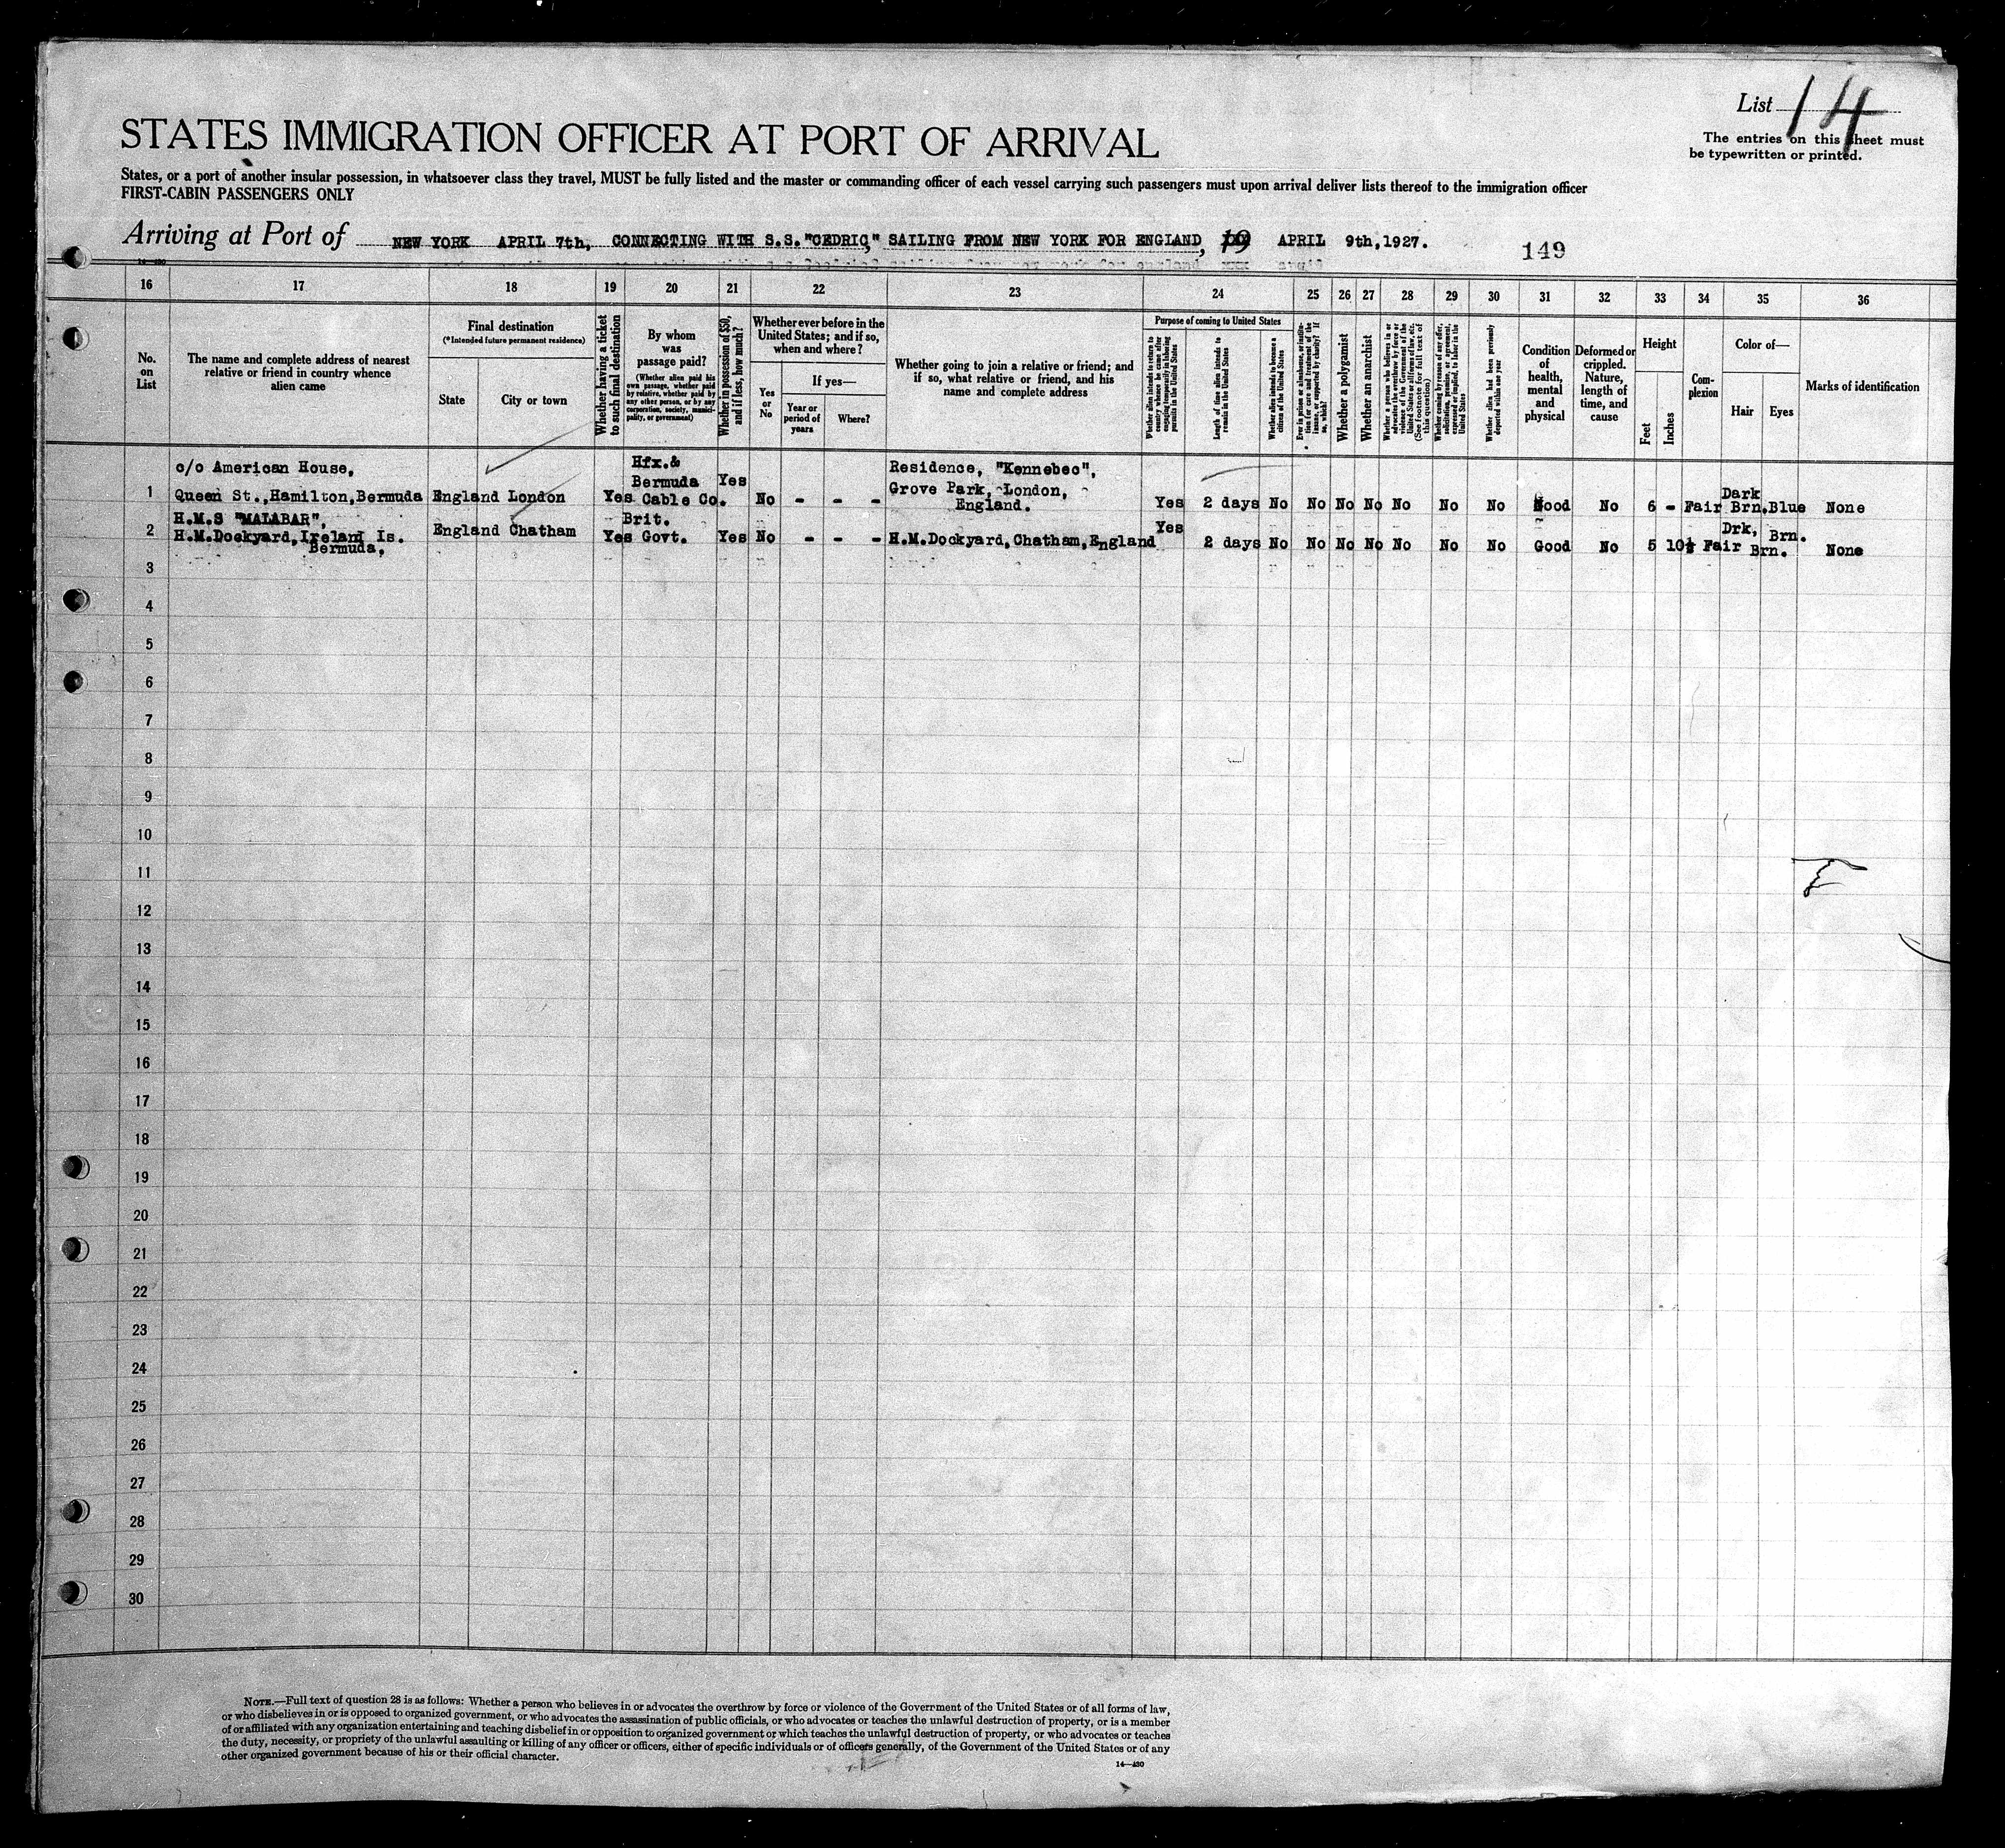 List 14
The entries on this sheet must
be typewritten or printed.
STATES IMMIGRATION OFFICER AT PORT OF ARRIVAL
States, or a port of another insular possession, in whatsoever class they travel, MUST be fully listed and the master or commanding officer of each vessel carrying such passengers must upon arrival deliver lists thereof to the immigration officer
FIRST-CABIN PASSENGERS ONLY
Arriving at Port of NEW YORK APRIL 7th, CONNECTING WITH S.S."CEDRIC," SAILING FROM NEW YORK FOR ENGLAND, 19 APRIL 9th,1927.
149
14—430
16 17 18 19 20 21 22 23 24 25 26 27 28 29 30 31 32 33 34 35 36
No. on List
The name and complete address of nearest relative or friend in country whence alien came
Final destination
(*Intended future permanent residence)
State
City or town
Whether having a ticket to such final destination
By whom was passage paid?
(Whether alien paid his own passage, whether paid by relative, whether paid by any other person, or by any corporation, society, municipality, or government)
Whether in possession of $50, and if less, how much?
Whether ever before in the United States; and if so, when and where?
Yes or No
If yes—
Year or period of years
Where?
Whether going to join a relative or friend; and if so, what relative or friend, and his name and complete address
Purpose of coming to United States
Whether alien intends to return to country whence he came after engaging temporarily in laboring pursuits in the United States
Length of time alien intends to remain in the United States
Whether alien intends to become a citizen of the United States
Ever in prison or almshouse, or institution for care and treatment of the insane, or supported by charity? If so, which?
Whether a polygamist
Whether an anarchist
Whether a person who believes in or advocates the overthrow by force or violence of the Government of the United States or all forms of law, etc. (See footnote for full text of this question)
Whether coming by reason of any offer, solicitation, promise, or agreement, expressed or implied, to labor in the United States
Whether alien had been previously deported within one year
Condition of health, mental and physical
Deformed or crippled. Nature, length of time, and cause
Height
Feet
Inches
Complexion
Color of—
Hair
Eyes
Marks of identification
1 c/o American House, Queen St.,Hamilton,Bermuda England London Yes Hfx.& Bermuda Cable Co. Yes No - - - Residence, "Kennebec", Grove Park, London, England. Yes 2 days No No No No No No No Good No 6 - Fair Dark Brn. Blue None
2 H.M.S "MALABAR", H.M.Dockyard,Ireland Is. Bermuda, England Chatham Yes Brit. Govt. Yes No - - - H.M.Dockyard,Chatham,England Yes 2 days No No No No No No No Good No 5 10½ Fair Drk, Brn. Brn. None
3
4
5
6
7
8
9
10
11
12
13
14
15
16
17
18
19
20
21
22
23
24
25
26
27
28
29
30
NOTE.—Full text of question 28 is as follows: Whether a person who believes in or advocates the overthrow by force or violence of the Government of the United States or of all forms of law,
or who disbelieves in or is opposed to organized government, or who advocates the assassination of public officials, or who advocates or teaches the unlawful destruction of property, or is a member
of or affiliated with any organization entertaining and teaching disbelief in or opposition to organized government or which teaches the unlawful destruction of property, or who advocates or teaches
the duty, necessity, or propriety of the unlawful assaulting or killing of any officer or officers, either of specific individuals or of officers generally, of the Government of the United States or of any
other organized government because of his or their official character.
14—430